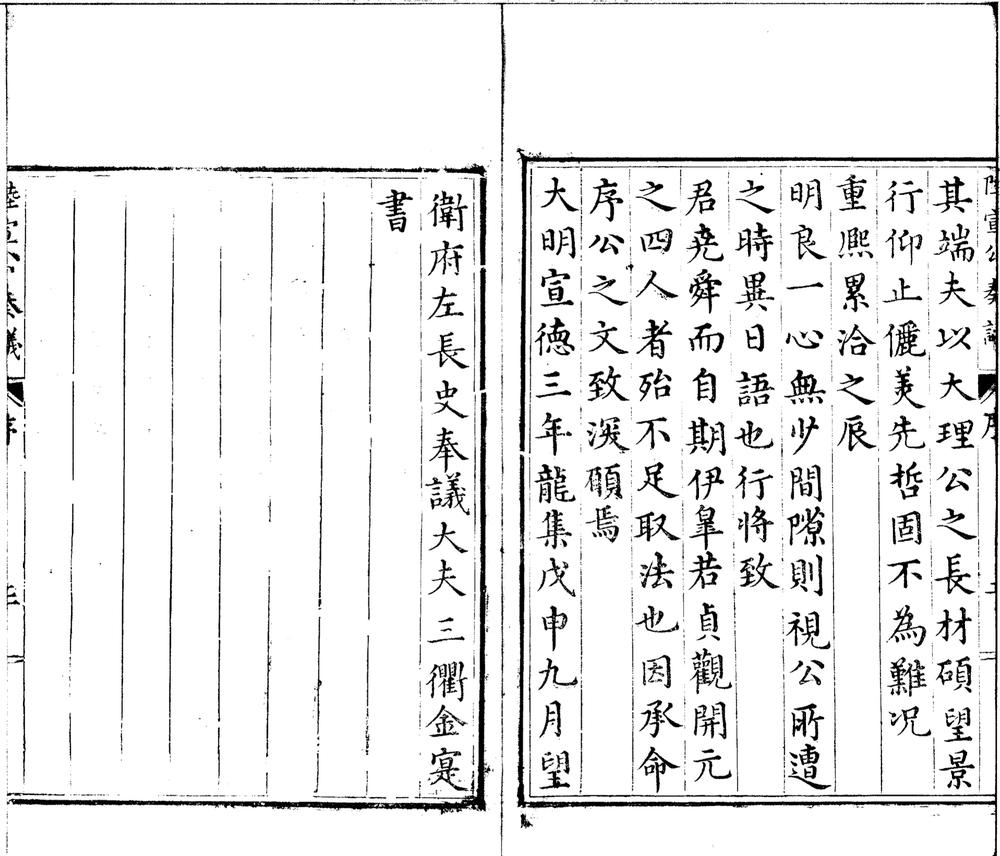 陸宣公奏議
序
其端夫以大理公之長材碩望景
行仰止儷美先哲固不為難況
重熈累洽之辰
明良一心無少間隙則視公所遭
之時異日語也行将致
君堯舜而自期伊皐若貞觀開元
之四人者殆不足取法也因承命
序公之文致深願焉
大明宣德三年龍集戊申九月望
衛府左長史奉議大夫三衢金寔
書
陸宣公奏議
序